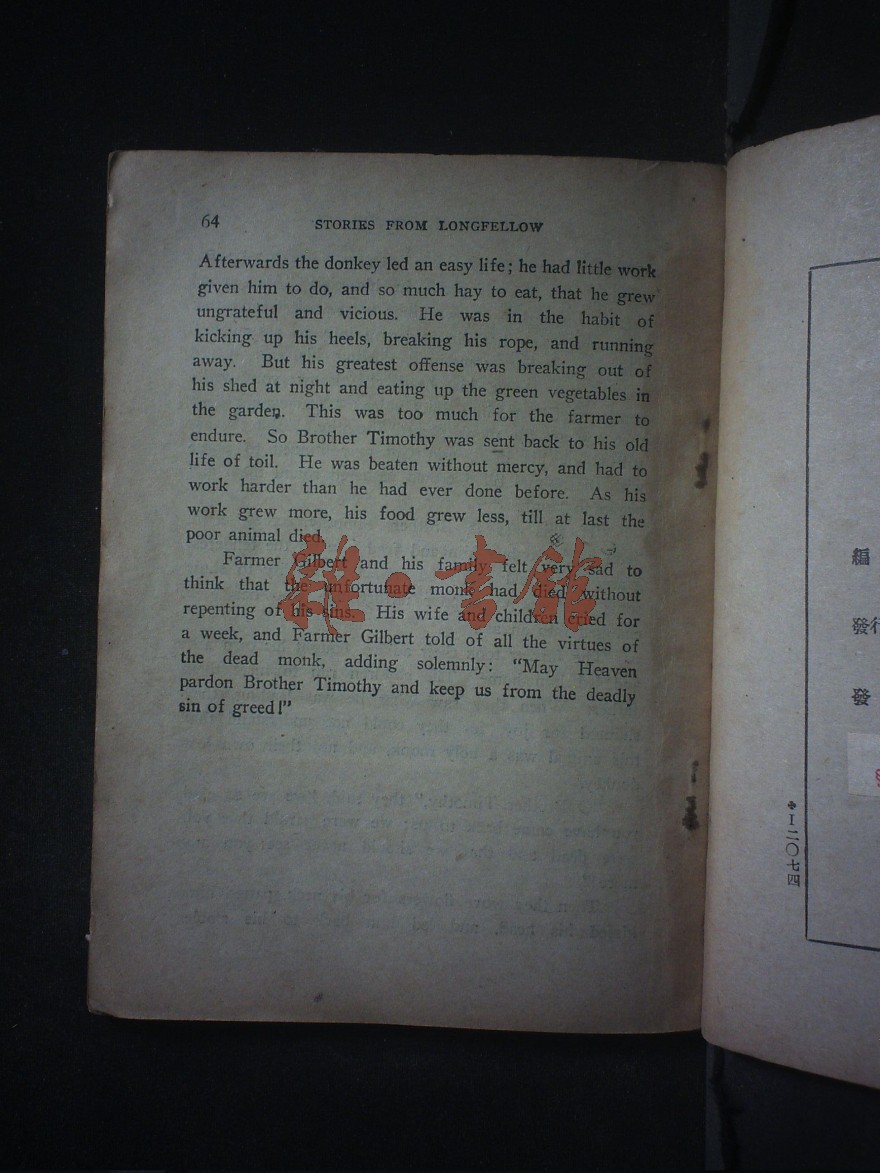 64
STORIES FROM LONGFELLOW
Afterwards the donkey led an easy life; he had little work
given him to do, and so much hay to eat, that he grew
ungrateful and vicious. He was in the habit of
kicking up his heels, breaking his rope, and running
away. But his greatest offense was breaking out of
his shed at night and eating up the green vegetables in
the garden. This was too much for the farmer to
endure. So Brother Timothy was sent back to his old
life of toil. He was beaten without mercy, and had to
work harder than he had ever done before. As his
work grew more, his food grew less, till at last the
poor animal died.
Farmer Gilbert and his family felt very sad to
think that the unfortunate monk had died without
repenting of his sins. His wife and children cried for
a week, and Farmer Gilbert told of all the virtues of
the dead monk, adding solemnly: "May Heaven
pardon Brother Timothy and keep us from the deadly
sin of greed!"
雜·書館
編
發行
發
I二〇七四